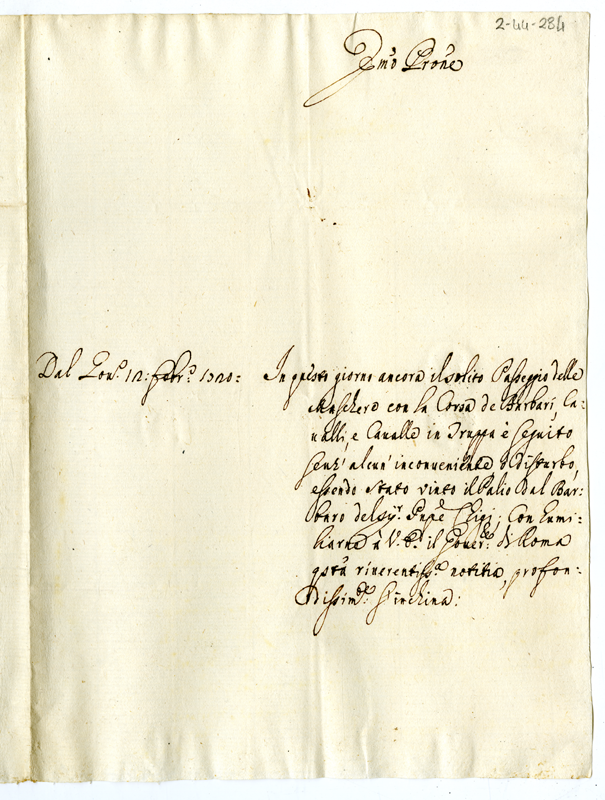 2-44-284
Emo Prone
Dal Gov.o 12: Febr.o 1720: In questo giorno ancora il solito Passeggio delle
Maschere con la Corsa de Barbari, Ca-
ualli, e Caualle in Truppa è seguito
senz' alcun' inconueniente ò disturbo,
essendo stato vinto il Palio dal Bar-
baro del Sig.r Pnpe Chigi; Con humi-
liarne à V. E. il Gouer.re di Roma
gsta riuerentiss.a notitia, profon-
dissim.te s'inchina: